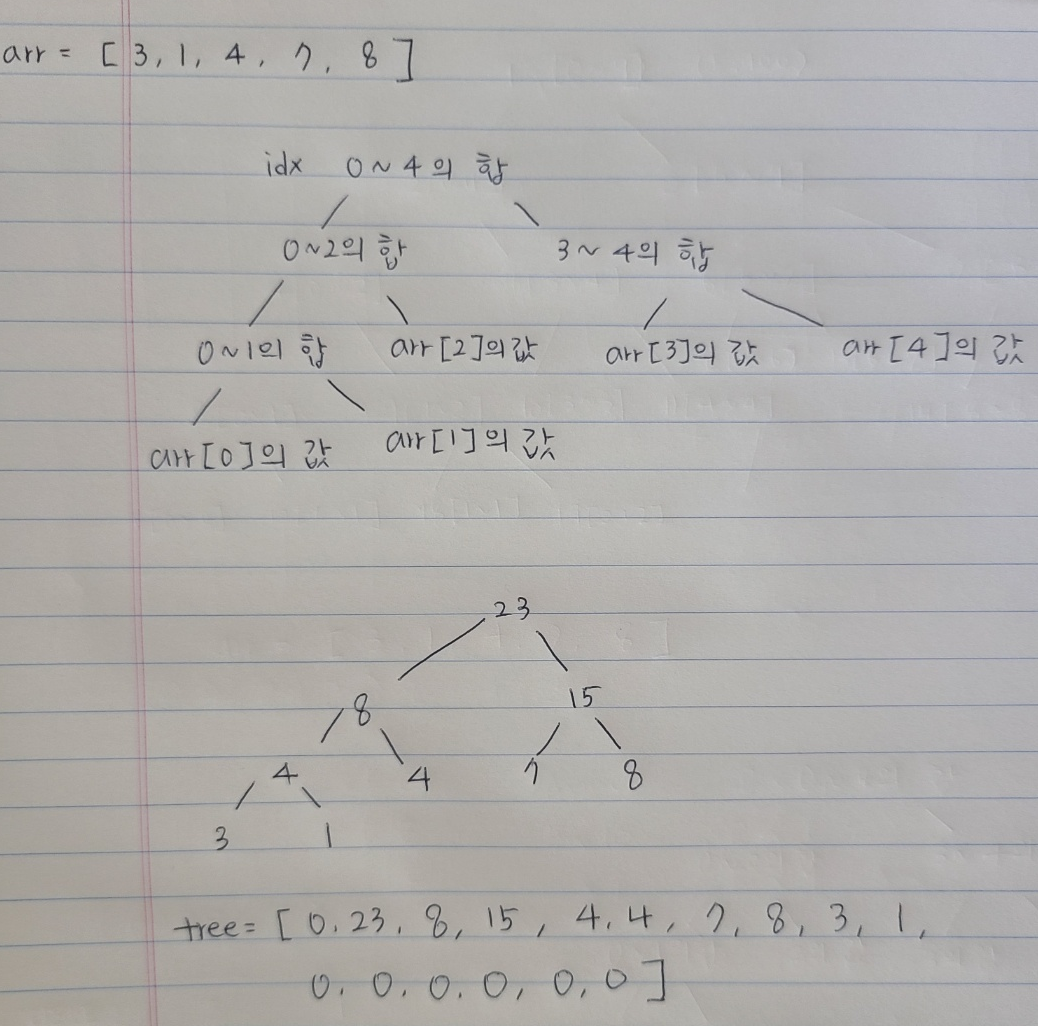 arr = [ 3, 1, 4, 7, 8 ]
idx 0 ~ 4 의 합
0 ~ 2의 합 3 ~ 4의 합
0 ~ 1의 합 arr [2]의 값 arr [3]의 값 arr [4]의 값
arr [0]의 값 arr [1]의 값
23
8 15
4 4 7 8
3 1
tree = [ 0, 23, 8, 15, 4, 4, 7, 8, 3, 1,
0, 0, 0, 0, 0, 0 ]